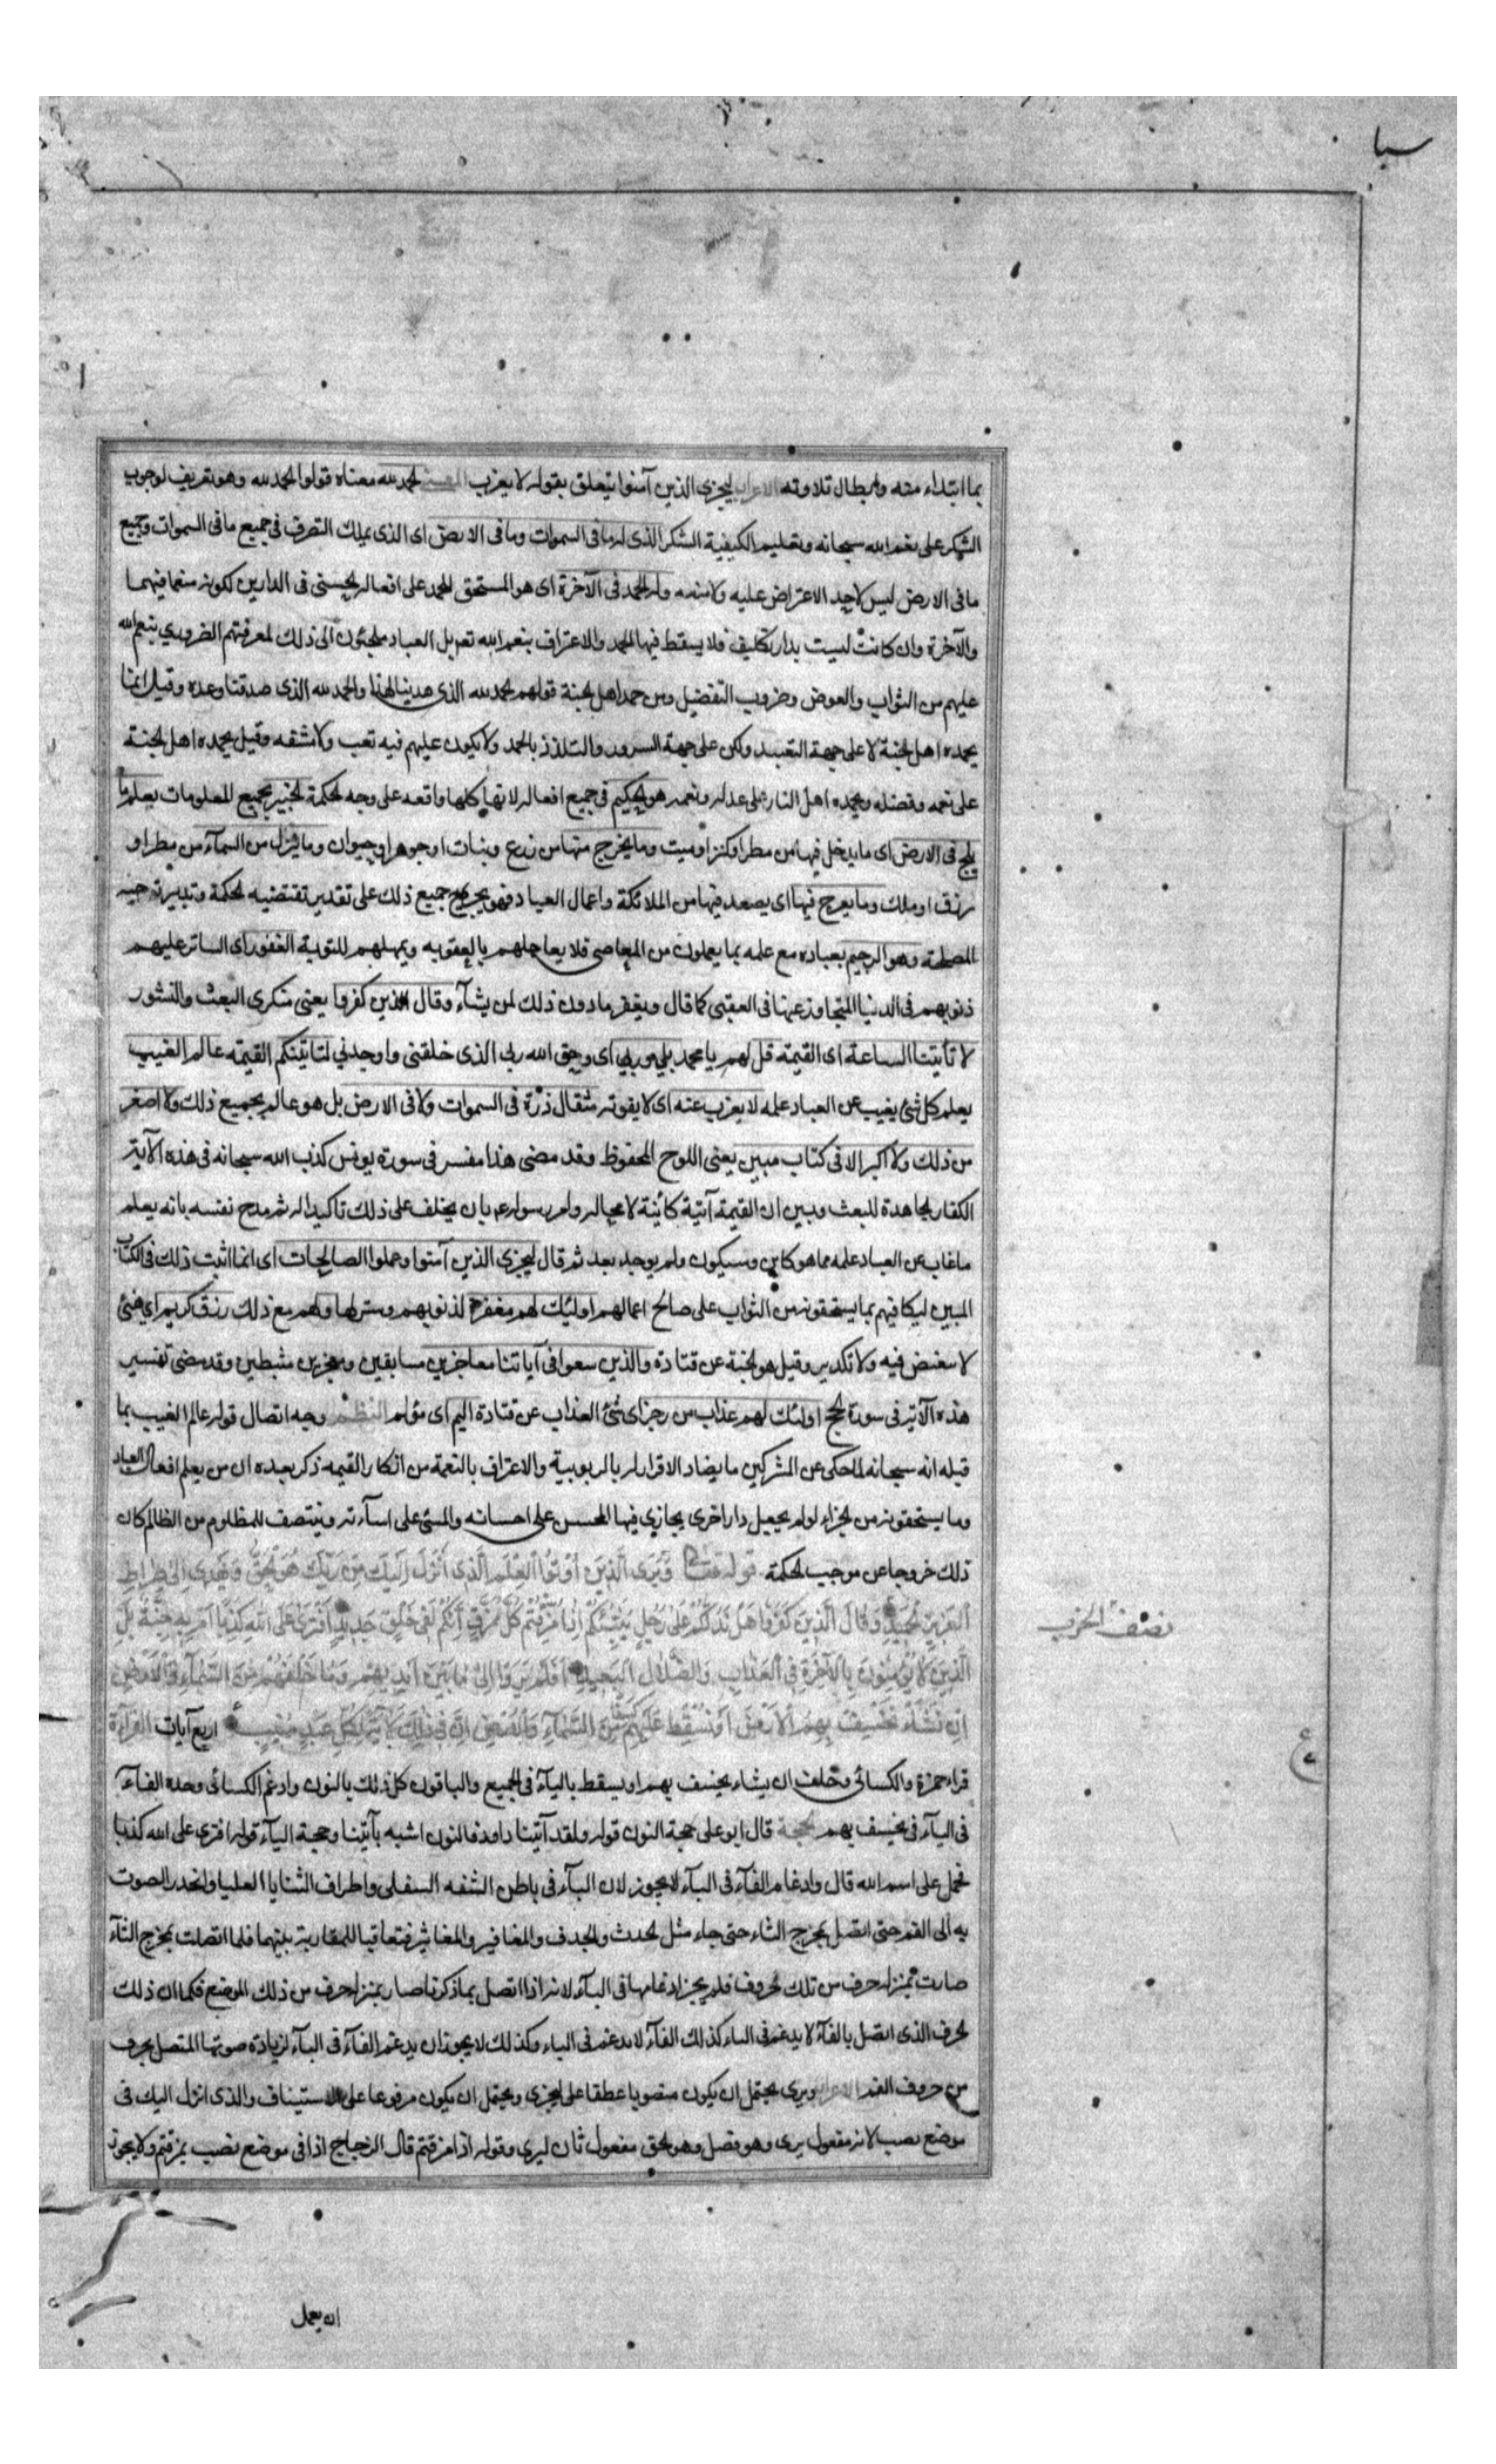 سبا
بما ابتداء منه وابطال تلاوته الاعراب ليجزى الذين آمنوا يتعلق بقوله لا يعزب المعنى الحمد لله معناه قولوا الحمد لله وهو تعريف لوجوب
الشكر على نعم الله سبحانه وتعليم الكيفية الشكر الذى له ما فى السموات وما فى الارض اى الذى يملك التصرف فى جميع ما فى السموات وجميع
ما فى الارض ليس لاحد الاعتراض عليه ولا منعه وله الحمد فى الآخرة اى هو المستحق للحمد على افعاله الحسنى فى الدارين لكونه منعما فيهما
والآخرة وان كانت ليست بدار تكليف فلا يسقط فيها الحمد والاعتراف بنعم الله تع بل العباد ملجئون الى ذلك لمعرفتهم الضرورى بنعم الله
عليهم من الثواب والعوض وضروب التفضيل ومن حمد اهل الجنة قولهم الحمد لله الذى هدينا لهذا والحمد لله الذى صدقنا وعده وقيل انما
يحمده اهل الجنة لا على جهة التعبد ولكن على جهة السرور والتلذذ بالحمد ولا يكون عليهم فيه تعب ولا مشقه وقيل يحمده اهل الجنة
على نعمه وفضله ويحمده اهل النار على عدله ونعمه هو الحكيم فى جميع افعاله لانها كلها واقعه على وجه الحكمة الخبير بجميع المعلومات يعلم ما
يلج فى الارض اى ما يدخل فيها من مطر او كنز او ميت وما يخرج منها من زرع ونبات او جوهر او حيوان وما ينزل من السمآء من مطر او
رزق او ملك وما يعرج فيها اى يصعد فيها من الملائكة واعمال العباد فهو يجرى جميع ذلك على تقدير تقتضيه الحكمة وتدبير توجبه
المصلحة وهو الرحيم بعباده مع علمه بما يعملون من المعاصى فلا يعاجلهم بالعقوبه ويمهلهم للتوبة الغفور اى الساتر عليهم
ذنوبهم فى الدنيا المتجاوز عنها فى العقبى كما قال ويغفر ما دون ذلك لمن يشآء وقال الذين كفروا يعنى منكرى البعث والنشور
لا تأتينا الساعة اى القيمة قل لهم يا محمد بلى وربى اى وحق الله ربى الذى خلقنى واوجدنى لتاتينكم القيمة عالم الغيب
يعلم كل شئ يغيب عن العباد علمه لا يعزب عنه اى لا يفوته مثقال ذرة فى السموات ولا فى الارض بل هو عالم بجميع ذلك ولا اصغر
من ذلك ولا اكبر الا فى كتاب مبين يعنى اللوح المحفوظ وقد مضى هذا مفسر فى سورة يونس كذب الله سبحانه فى هذه الآية
الكفار الجاهدة للبعث وبين ان القيمة آتية كائنة لا محالة وامر رسوله ع بان يحلف على ذلك تاكيدا له ثم مدح نفسه بانه يعلم
ما غاب عن العباد علمه مما هو كاين وسيكون ولم يوجد بعد ثم قال ليجزى الذين آمنوا وعملوا الصالحات اى انما اثبت ذلك فى الكتاب
المبين ليكافيهم بما يستحقونه من الثواب على صالح اعمالهم اولئك لهم مغفرة لذنوبهم وستر لها ولهم مع ذلك رزق كريم اى هنئ
لا منغض فيه ولا تكدير وقيل هو الجنة عن قتادة والذين سعوا فى آياتنا معاجزين مسابقين ومعجزين مثبطين وقد مضى تفسير
هذه الآية فى سورة الحج اولئك لهم عذاب من رجز اى سئ العذاب عن قتادة اليم اى مؤلم النظم وجه اتصال قوله عالم الغيب بما
قبله انه سبحانه لما حكى عن المشركين ما يضاد الاقرار له بالربوبية والاعتراف بالنعمة من انكار القيمة ذكر بعده ان من يعلم افعال العباد
وما يستحقونه من الجزاء لو لم يجعل دارا اخرى يجازى فيها المحسن على احسانه والمسئ على اسآءته وينتصف للمظلوم من الظالم كان
ذلك خروجا عن موجب الحكمة قوله تعالى وَيَرَى الَّذِينَ أُوتُوا الْعِلْمَ الَّذِى أُنْزِلَ إِلَيْكَ مِنْ رَبِّكَ هُوَ الْحَقَّ وَيَهْدِى إِلَى صِرَاطِ
الْعَزِيزِ الْحَمِيدِ وَقَالَ الَّذِينَ كَفَرُوا هَلْ نَدُلُّكُمْ عَلَى رَجُلٍ يُنَبِّئُكُمْ إِذَا مُزِّقْتُمْ كُلَّ مُمَزَّقٍ إِنَّكُمْ لَفِى خَلْقٍ جَدِيدٍ أَفْتَرَى عَلَى اللهِ كَذِبًا أَمْ بِهِ جِنَّةٌ بَلِ
الَّذِينَ لَا يُؤْمِنُونَ بِالْآخِرَةِ فِى الْعَذَابِ وَالضَّلَالِ الْبَعِيدِ أَفَلَمْ يَرَوْا إِلَى مَا بَيْنَ أَيْدِيهِمْ وَمَا خَلْفَهُمْ مِنَ السَّمَآءِ وَالْأَرْضِ
إِنْ نَشَأْ نَخْسِفْ بِهِمُ الْأَرْضَ أَوْ نُسْقِطْ عَلَيْهِمْ كِسَفًا مِنَ السَّمَآءِ إِنَّ فِى ذَلِكَ لَآيَةً لِكُلِّ عَبْدٍ مُنِيبٍ اربع آيات القراءة
قراء حمزة والكسائى وخلف ان يشاء يخسف بهم او يسقط باليآء فى الجميع والباقون كل ذلك بالنون وادغم الكسائى وحده الفآء
فى البآء فى يخسف بهم الحجة قال ابو على حجة النون قوله ولقد آتينا داود فالنون اشبه بآتينا وحجة اليآء قوله افترى على الله كذبا
فحمل على اسم الله قال وادغام الفآء فى البآء لا يجوز لان البآء فى باطن الشفه السفلى واطراف الثنايا العليا وانحدر الصوت
به الى الفم حتى اتصل بمخرج الثاء حتى جاء مثل الحدث والجدف والمغافير والمغاثير فتعاقبا للمقاربة بينهما فلما اتصلت بمخرج الثآء
صارت بمنزلة حرف من تلك الحروف فلم يجز ادغامها فى البآء لانه اذا اتصل بما ذكرنا صار بمنزلة حرف من ذلك الموضع فكما ان ذلك
الحرف الذى اتصل بالفآء لا يدغم فى الباء كذلك الفآء لا يدغم فى الباء وكذلك لا يجوز ان يدغم الفآء فى البآء لزيادة صوتها المتصل بحرف
من حروف الفم الاعراب ويرى يحتمل ان يكون منصوبا عطفا على ليجزى ويحتمل ان يكون مرفوعا على الاستيناف والذى انزل اليك فى
موضع نصب لانه مفعول يرى وهو فصل وهو الحق مفعول ثان ليرى وقوله اذا مزقتم قال الزجاج اذا فى موضع نصب بمزقتم ولا يجوز
نصف الحزب
ع
ان يعمل